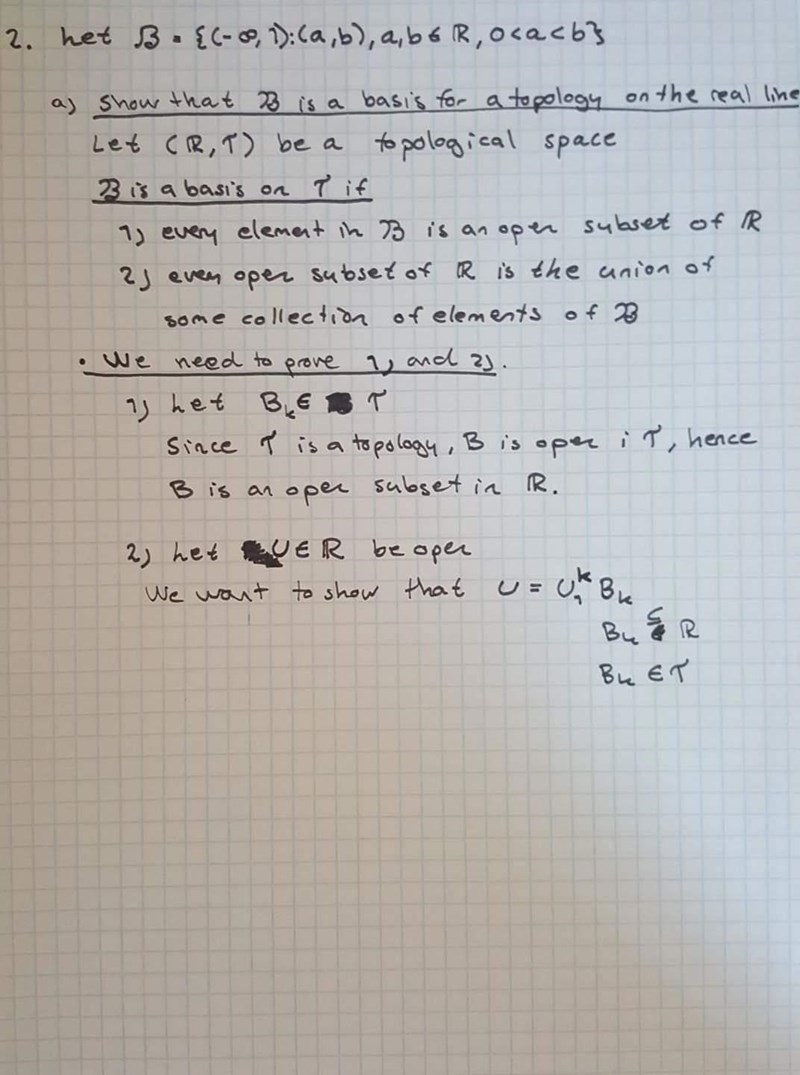 2. Let B = {(-∞, 1): (a,b), a,b ∈ R, 0<a<b}
a) Show that B is a basis for a topology on the real line
Let (R, T) be a topological space
B is a basis on T if
1) every element in B is an open subset of R
2) every open subset of R is the union of
some collection of elements of B
• We need to prove 1) and 2).
1) Let Bₖ ∈ T
Since T is a topology, B is open i T, hence
B is an open subset in R.
2) Let U ∈ R be open
We want to show that U = ∪₁ᵏ Bₖ
Bₖ ⊆ R
Bₖ ∈ T